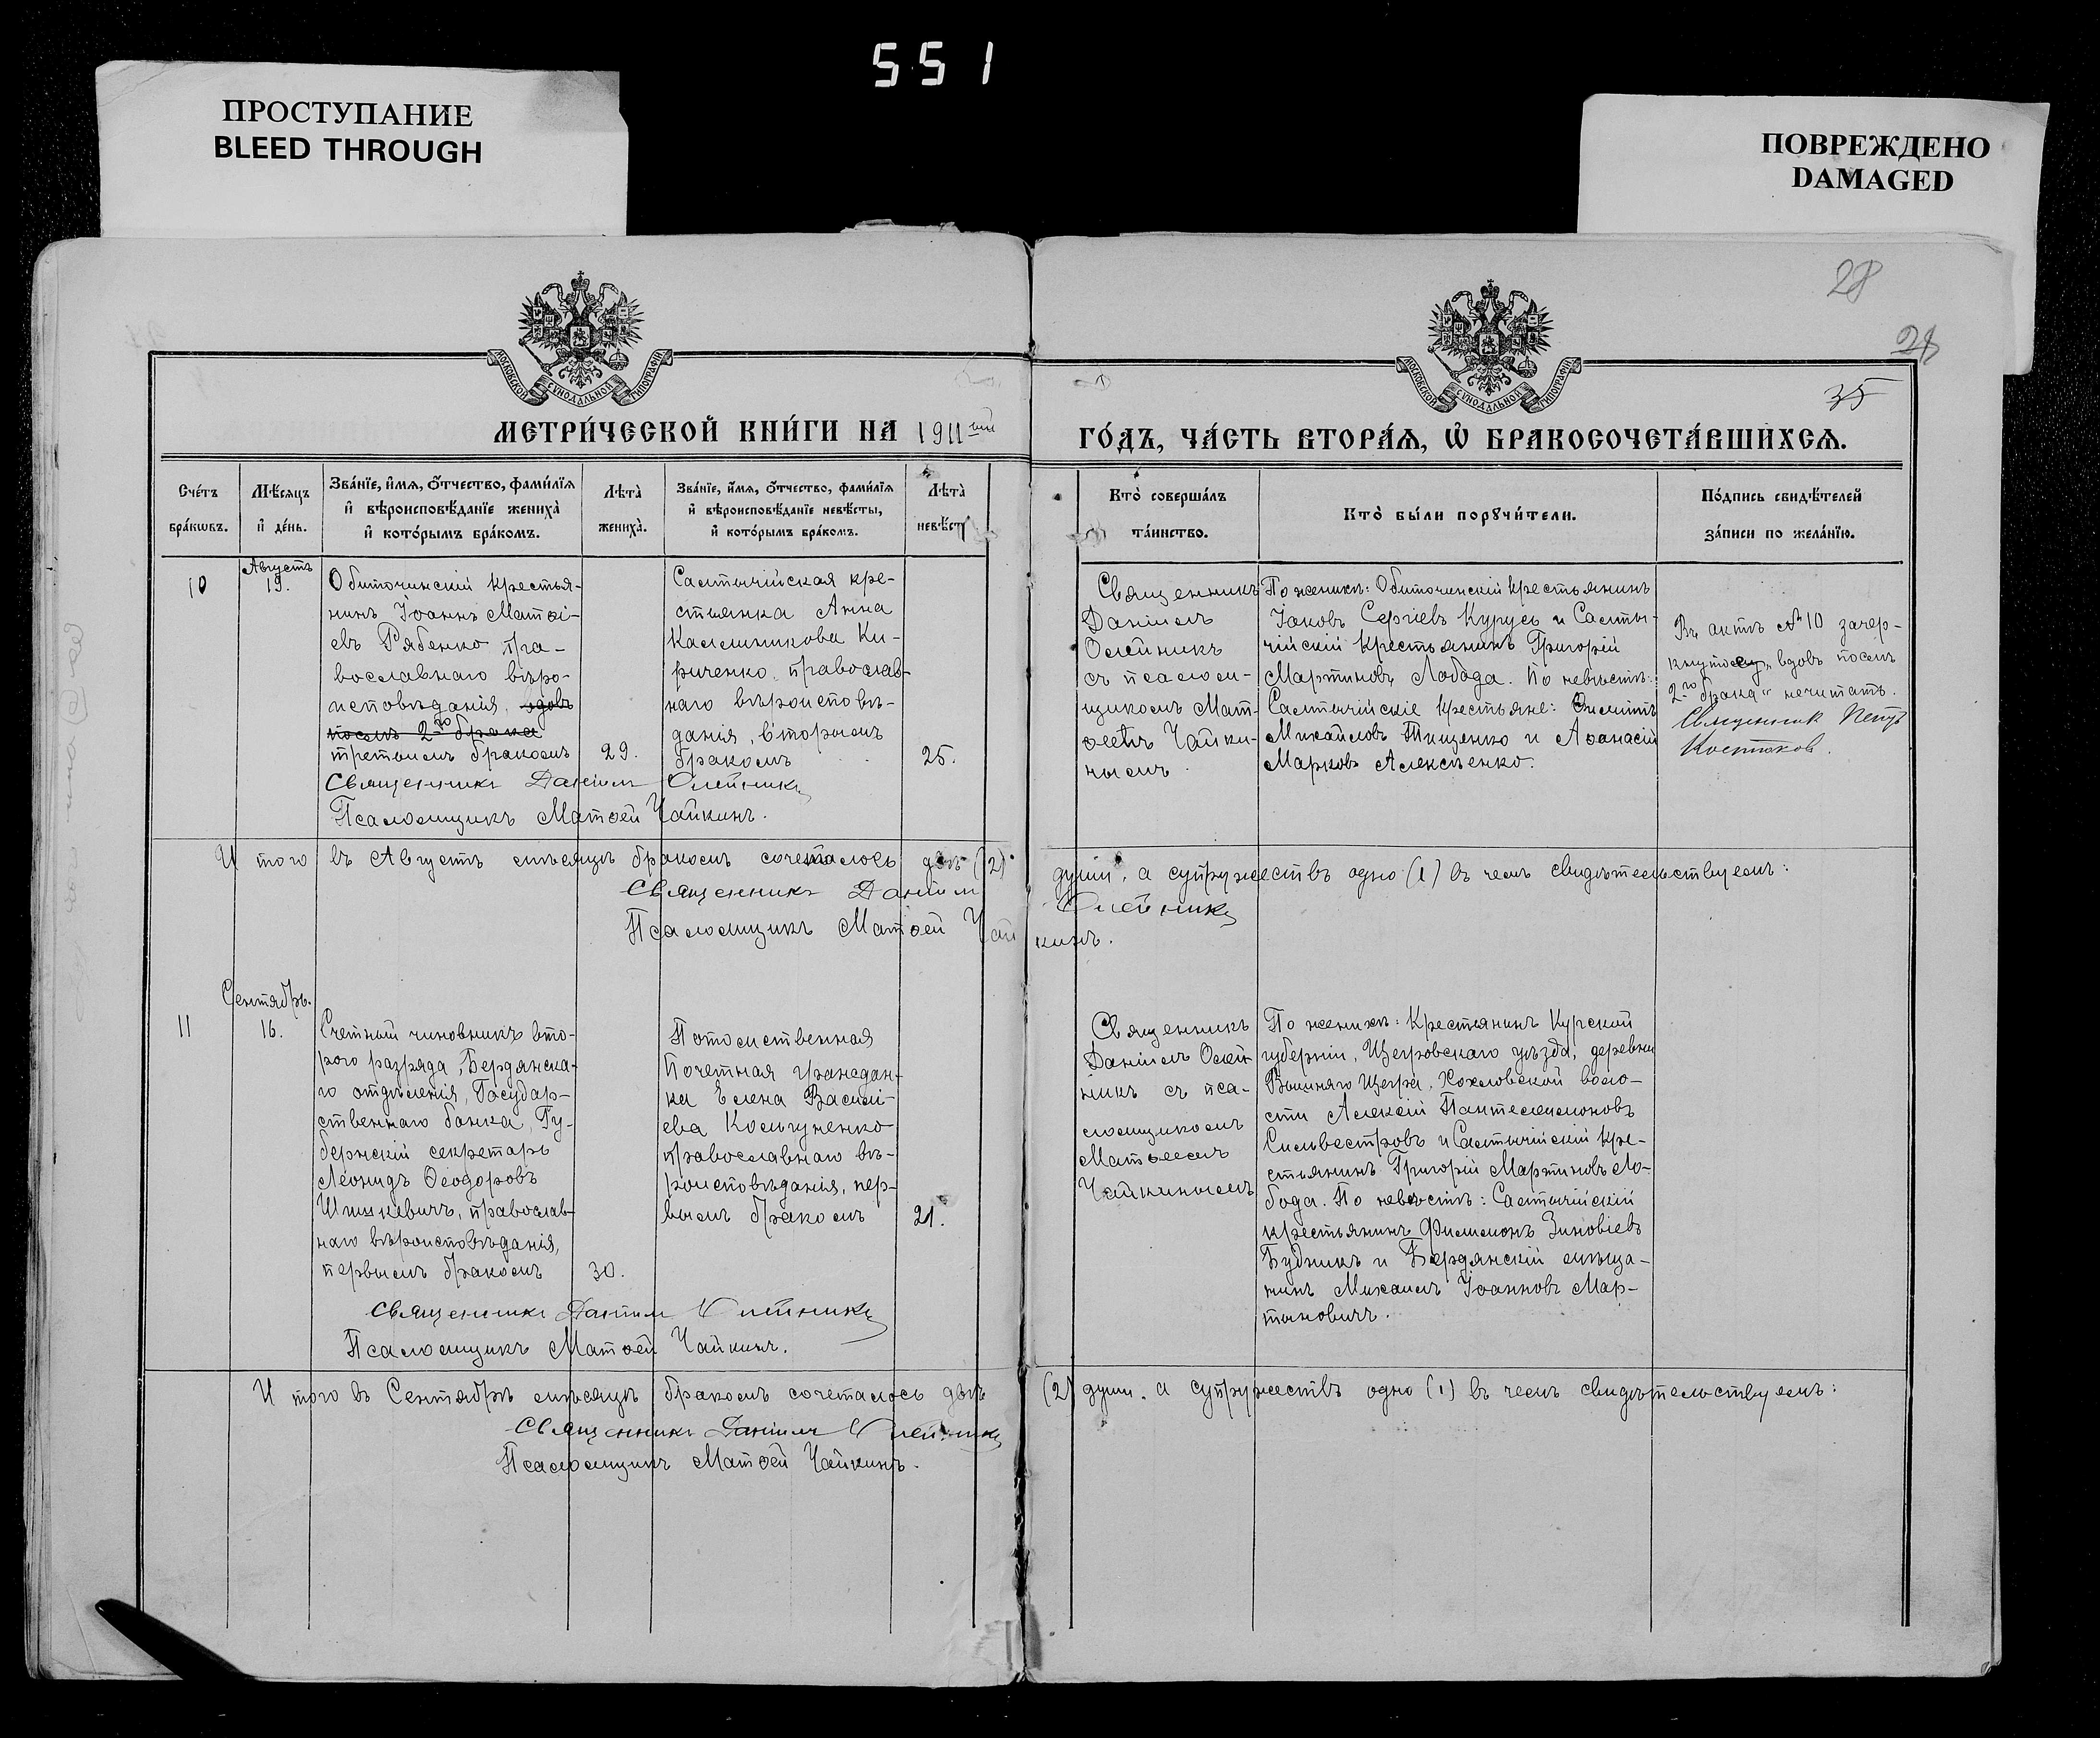 551
ПРОСТУПАНИЕ
BLEED THROUGH
ПОВРЕЖДЕНО
DAMAGED
28
28
35
МОСКОВСКОЙ СѴНОДАЛЬНОЙ ТИПОГРАФІИ
МОСКОВСКОЙ СѴНОДАЛЬНОЙ ТИПОГРАФІИ
МЕТРИ́ЧЕСКОЙ КНИ́ГИ НА 1911ый
ГО́ДЪ, ЧА́СТЬ ВТОРА́Ѧ, Ѡ҆ БРАКОСОЧЕТА́ВШИХСѦ.
Сче́тъ
бра́кѡвъ.
Мѣ́сѧцъ
и҆ де́нь.
Зва́нїе, и҆́мѧ, ѻ҆́тчество, фами́лїѧ
и҆ вѣроисповѣ́данїе жениха̀
и҆ кото́рымъ бра́комъ.
Лѣта̀
жениха̀.
Зва́нїе, и҆́мѧ, ѻ҆́тчество, фами́лїѧ
и҆ вѣроисповѣ́данїе невѣ́сты,
и҆ кото́рымъ бра́комъ.
Лѣта̀
невѣ́сты
Кто̀ соверша́лъ
та́инство.
Кто̀ бы́ли порꙋчи́тели.
По́дпись свидѣ́телей
за́писи по жела́нїю.
10
Августъ
19.
Обиточинскій крестья-
нинъ Іоаннъ Матѳі-
евъ Рябенко пра-
вославнаго вѣро-
исповѣданія, вдовъ
послѣ 2го брака
третьимъ бракомъ
29.
Салтычійская кре-
стьянка Анна
Каллиникова Ки-
риченко, православ-
наго вѣроисповѣ-
данія, вторымъ
бракомъ
25.
Священникъ Даніилъ Олейникъ
Псаломщикъ Матѳей Чайкинъ.
Священникъ
Даніилъ
Олейникъ
съ псалом-
щикомъ Мат-
ѳеемъ Чайки-
нымъ.
По женихѣ: Обиточинскій крестьянинъ
Іаковъ Сергіевъ Курусь и Салты-
чійскій крестьянинъ Григорій
Мартиновъ Лобода. По невѣстѣ:
Салтычійскіе крестьяне: Филиппъ
Михайловъ Тищенко и Аѳанасій
Марковъ Алексѣенко.
Въ актѣ № 10 зачер-
кнутому „вдовъ послѣ
2го брака" не читать.
Священник Петръ
Костюков.
И того въ Августѣ мѣсяцѣ бракомъ сочеталось двѣ (2)
души, а супружествъ одно (1) въ чемъ свидѣтельствуемъ:
Священникъ Даніилъ Олейникъ
Псаломщикъ Матѳей Чайкинъ.
11
Сентябрь.
16.
Счетный чиновникъ вто-
рого разряда, Бердянска-
го отдѣленія, Государ-
ственнаго банка, Гу-
бернскій секретарь
Леонидъ Ѳеодоровъ
Шишкевичъ, православ-
наго вѣроисповѣданія,
первымъ бракомъ
30.
Потомственная
Почетная граждан-
ка Елена Василі-
ева Кользуненко
православнаго вѣ-
роисповѣданія, пер-
вымъ бракомъ
21.
Священникъ Даніилъ Олейникъ
Псаломщикъ Матѳей Чайкинъ.
Священникъ
Даніилъ Олей-
никъ съ пса-
ломщикомъ
Матѳеемъ
Чайкинымъ
По женихѣ: Крестьянинъ Курской
губерніи, Щигровскаго уѣзда, деревни
Вышняго Щегра, Хохловской воло-
сти Алексій Пантелеимоновъ
Сильвестровъ и Салтычійскій кре-
стьянинъ Григорій Мартиновъ Ло-
бода. По невѣстѣ: Салтычійскій
крестьянинъ Филимонъ Зиновіевъ
Будникъ и Бердянскій мѣща-
нинъ Михаилъ Іоанновъ Мар-
тыновичъ.
И того въ Сентябрѣ мѣсяцѣ бракомъ сочеталось двѣ
(2) души, а супружествъ одно (1) въ чемъ свидѣтельствуемъ:
Священникъ Даніилъ Олейникъ
Псаломщикъ Матѳей Чайкинъ.